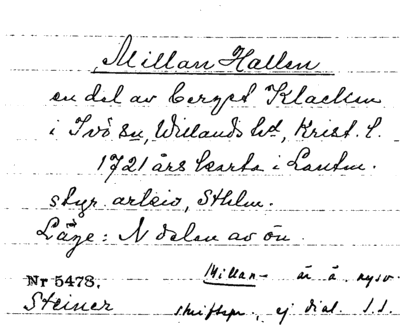 Millan Hallen
en del av berget Klacken
i Ivö sn, Willands hd, Krist. l.
1721 års karta i Lantm.
styr. arkiv, Sthlm.
Läge: N delen av ön.
Millan- är å. nysv.
Nr 5478.
Steiner skriftspr., ej dial.